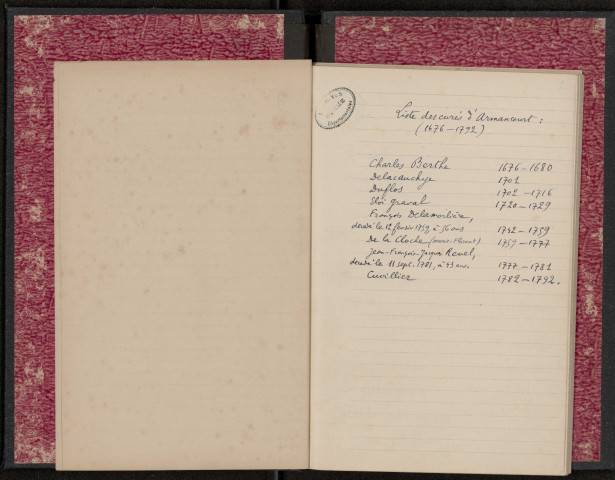 Liste des curés d'Armancourt :
(1676-1792)
Charles Berthe 1676-1680
Delacauchye 1701
Duflos 1702-1716
Eloi graval 1720-1729
François Delamorlière,
décédé le 12 février 1759, à 56 ans 1742-1759
De la Cloche 1759-1777
Jean-François-Jacques Revel,
décédé le 11 sept. 1781, à 43 ans. 1777-1781
Cuvillier 1782-1792.